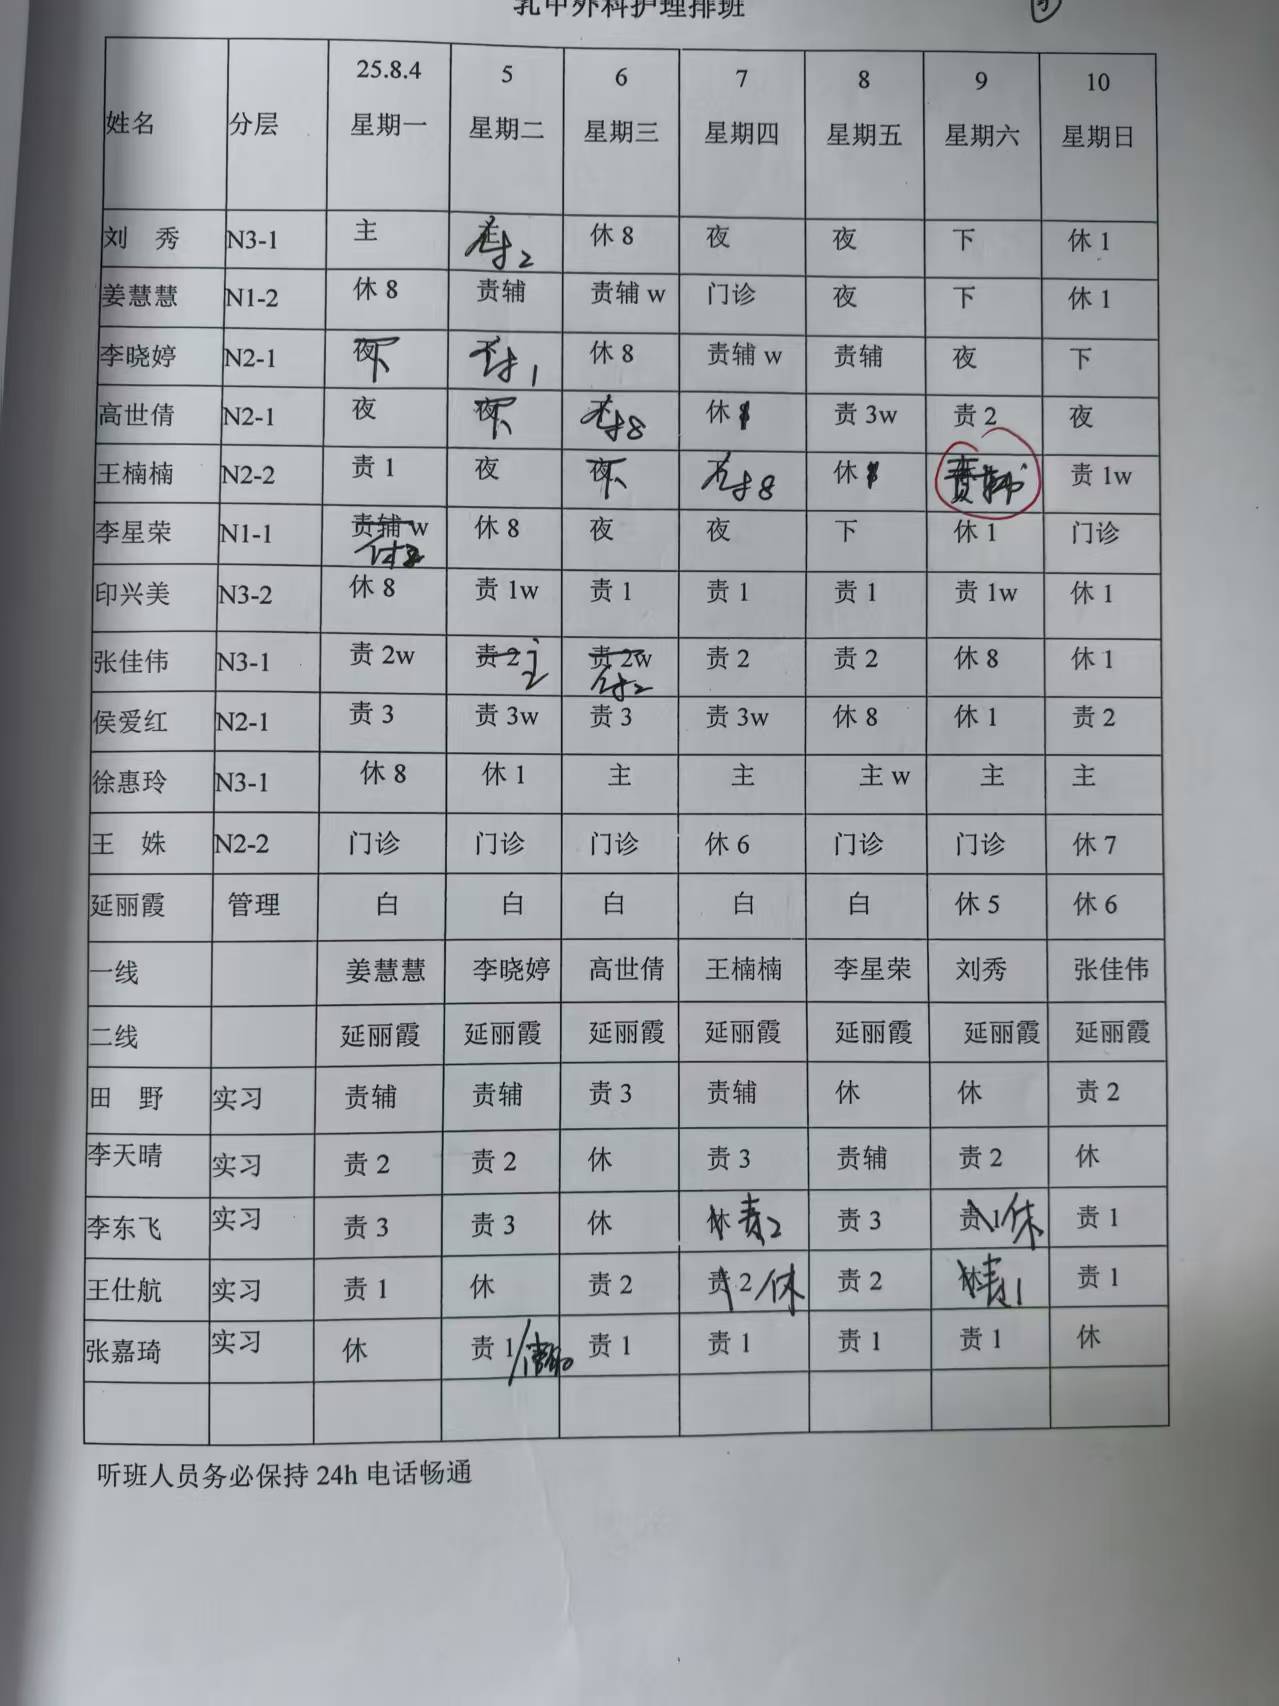 乳甲外科护理排班
姓名 分层 25.8.4 星期一 5 星期二 6 星期三 7 星期四 8 星期五 9 星期六 10 星期日
刘 秀 N3-1 主 休8 夜 夜 下 休1
姜慧慧 N1-2 休8 责辅 责辅w 门诊 夜 下 休1
李晓婷 N2-1 下 休8 责辅w 责辅 夜 下
高世倩 N2-1 夜 下 休 责3w 责2 夜
王楠楠 N2-2 责1 夜 下 休 责辅 责1w
李星荣 N1-1 责辅w 休8 夜 夜 下 休1 门诊
印兴美 N3-2 休8 责1w 责1 责1 责1 责1w 休1
张佳伟 N3-1 责2w 责2 主 责2w 责2 责2 休8 休1
侯爱红 N2-1 责3 责3w 责3 责3w 休8 休1 责2
徐惠玲 N3-1 休8 休1 主 主 主w 主 主
王 姝 N2-2 门诊 门诊 门诊 休6 门诊 门诊 休7
延丽霞 管理 白 白 白 白 白 休5 休6
一线 姜慧慧 李晓婷 高世倩 王楠楠 李星荣 刘秀 张佳伟
二线 延丽霞 延丽霞 延丽霞 延丽霞 延丽霞 延丽霞 延丽霞
田 野 实习 责辅 责辅 责3 责辅 休 休 责2
李天晴 实习 责2 责2 休 责3 责辅 责2 休
李东飞 实习 责3 责3 休 休 责2 责3 责1 休 责1
王仕航 实习 责1 休 责2 责2 休 责2 休 责1 责1
张嘉琦 实习 休 责1 责1 责1 责1 责1 休
听班人员务必保持24h电话畅通